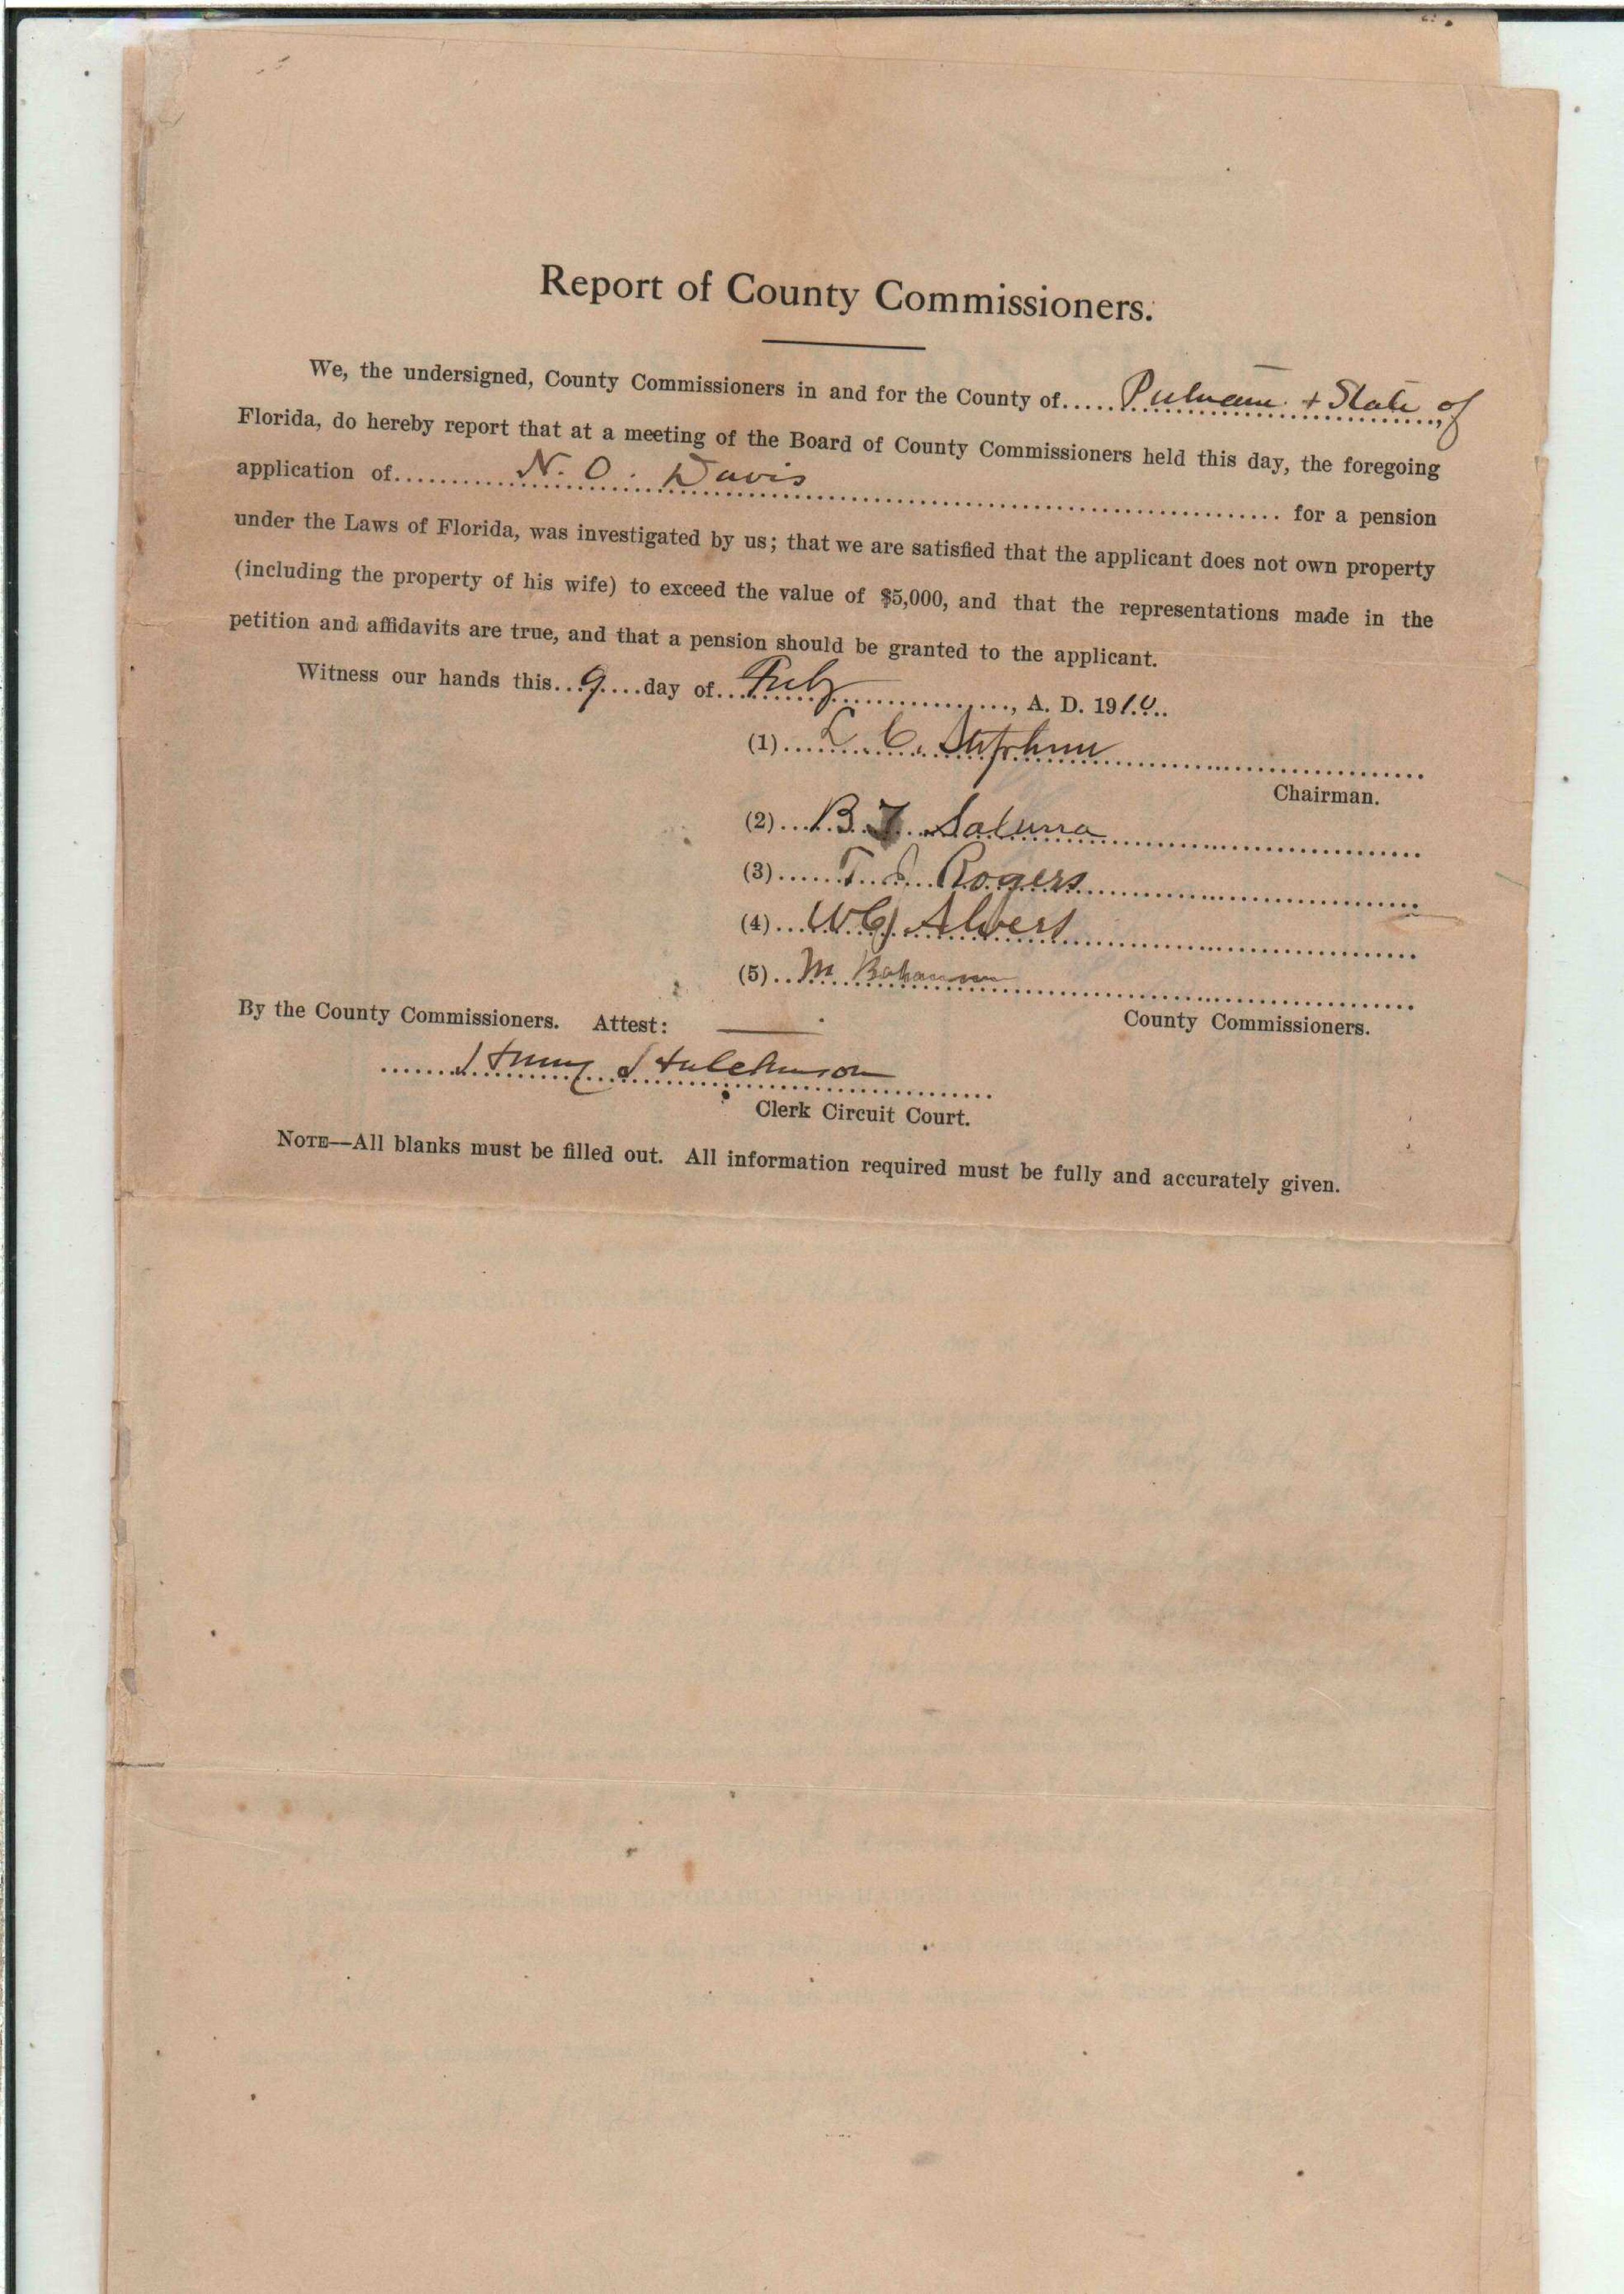 Report of County Commissioners.
We, the undersigned, County Commissioners in and for the County of..... Putnam + State of
Florida, do hereby report that at a meeting of the Board of County Commissioners held this day, the foregoing
application of.......... N. O. Davis .......... for a pension
under the Laws of Florida, was investigated by us; that we are satisfied that the applicant does not own property
(including the property of his wife) to exceed the value of $5,000, and that the representations made in the
petition and affidavits are true, and that a pension should be granted to the applicant.
Witness our hands this...9....day of.. Feby .........., A. D. 1910..
(1).... L C. Stephens
Chairman.
(2)... B
(3)...... T. J. Rogers
(4)...
(5).. M
County Commissioners.
By the County Commissioners. Attest:
....... Henry Hutchinson
Clerk Circuit Court.
NOTE—All blanks must be filled out. All information required must be fully and accurately given.